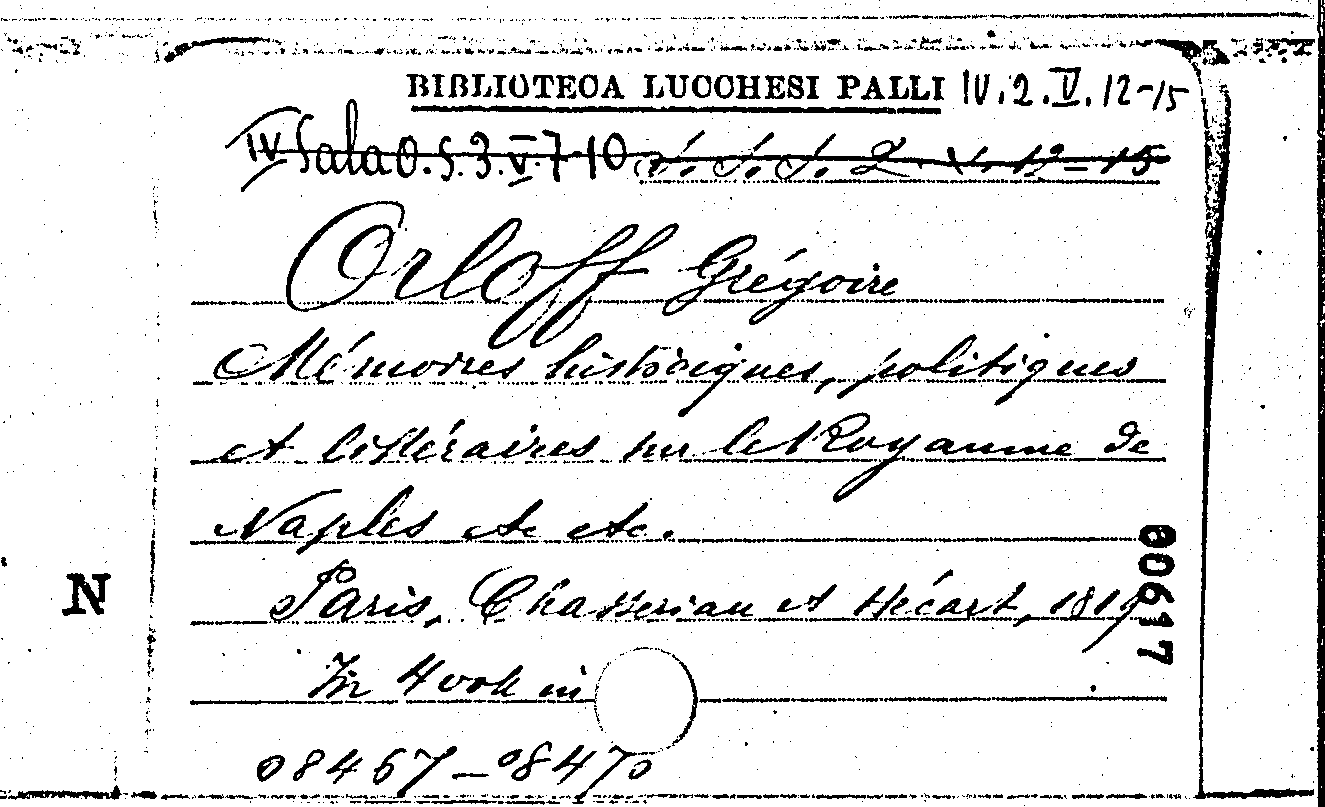 BIBLIOTECA LUCCHESI PALLI IV.2.V.12-15
IV Sala O.S.3.V.7-10
Orloff Grégoire
Mémoires historiques, politiques
et littéraires sur le Royaume de
Naples etc etc.
Paris, Chasseriau et Hécart, 1819
In 4 voll in
08467-08470
N
00617